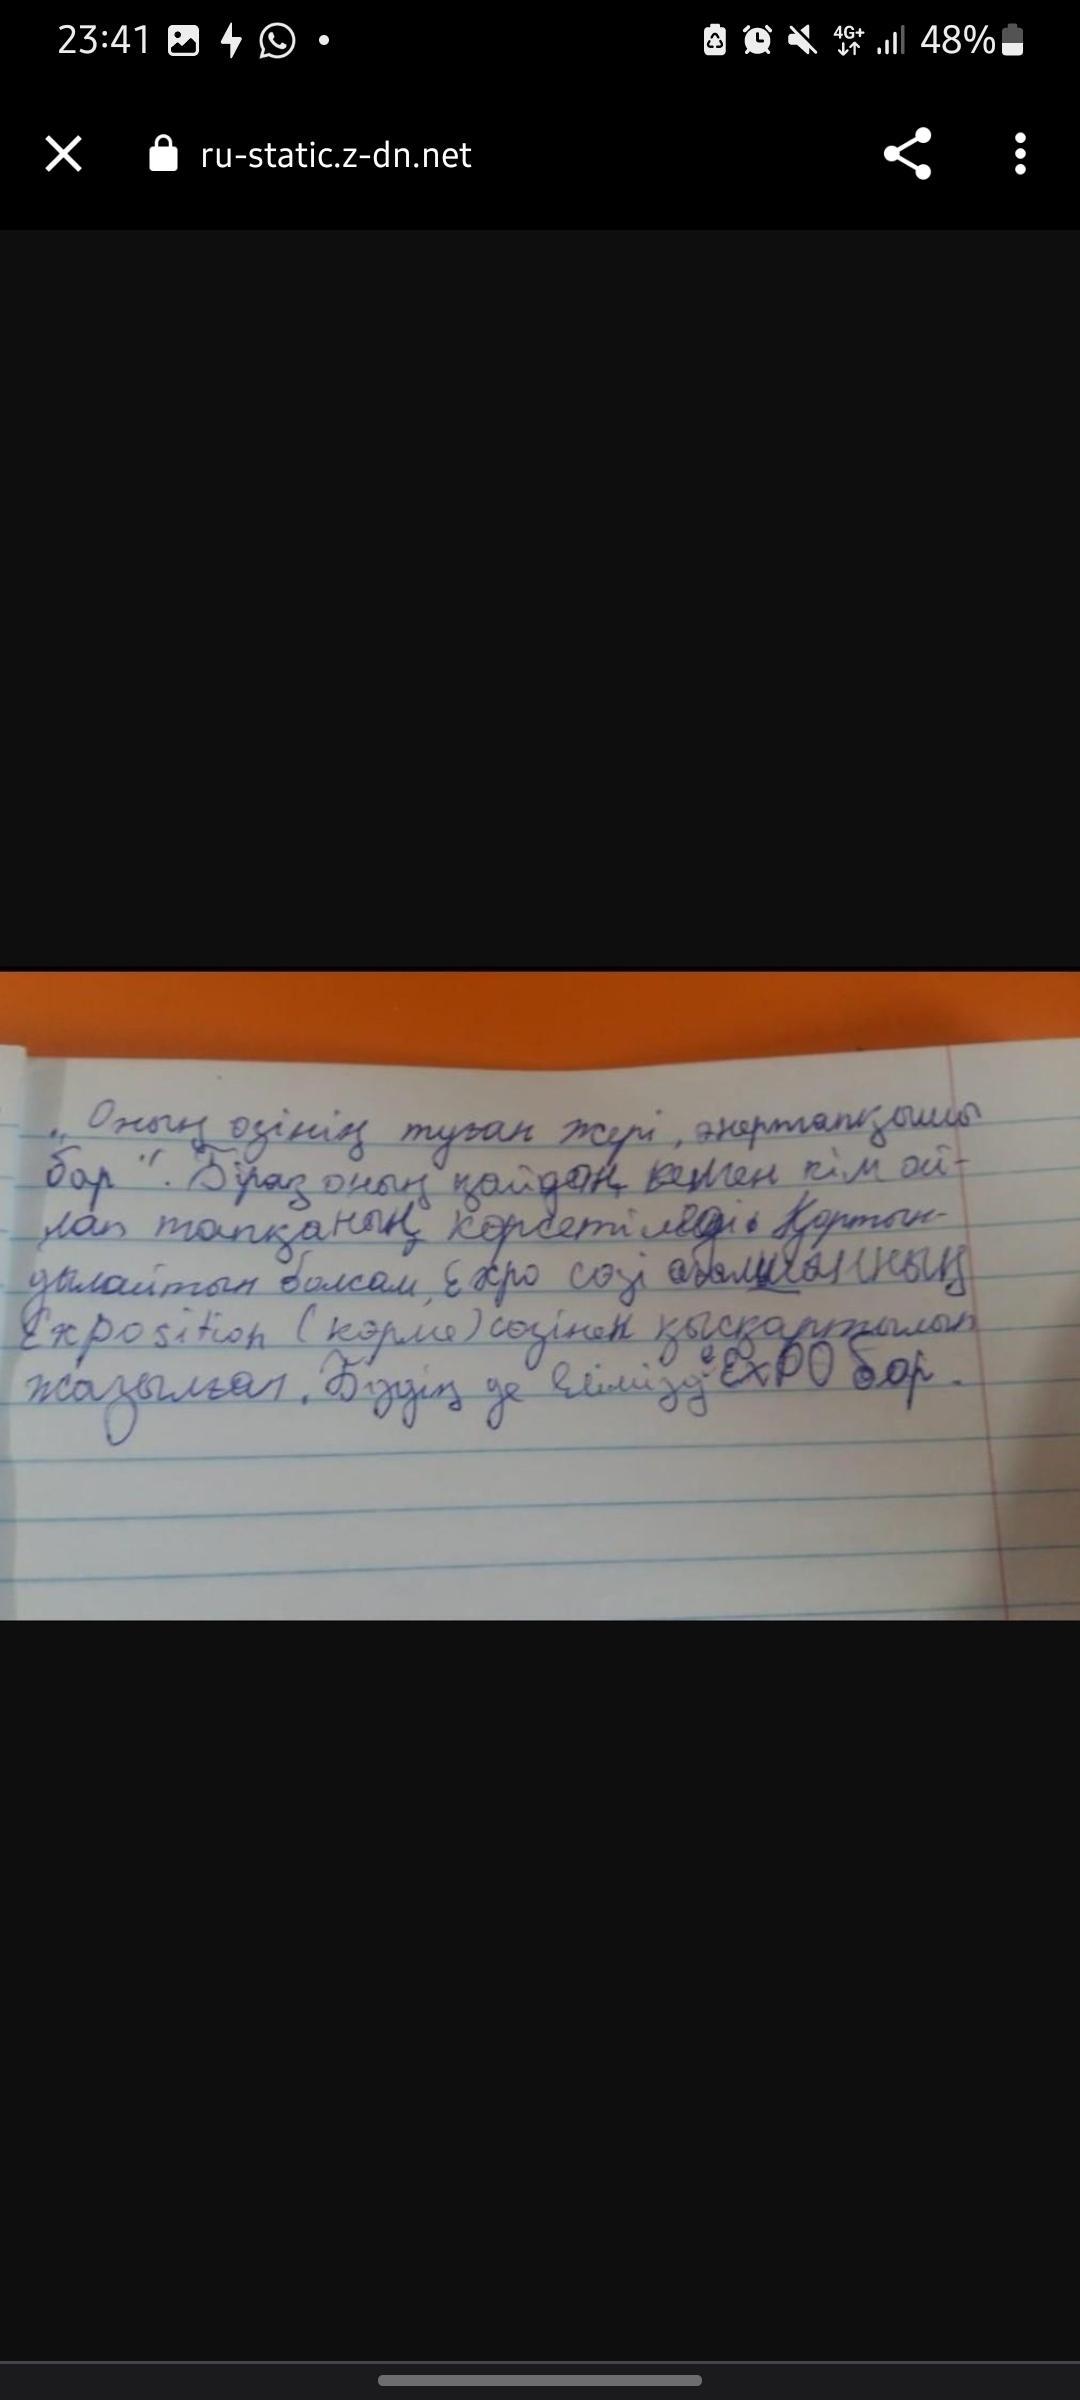 23:41
4G+ 48%
ru-static.z-dn.net
„ Оның өзінің туған жері, өнертапқышы
бар". Бірақ оның қайдан келген кім ой-
лап тапқанның көрсетілмеді. Қортын-
дылайтын болсам, Expo сөзі
Exposition (көрме) сөзінен қысқартылып
жазылған. Біздің де елімізде EXPO бар.